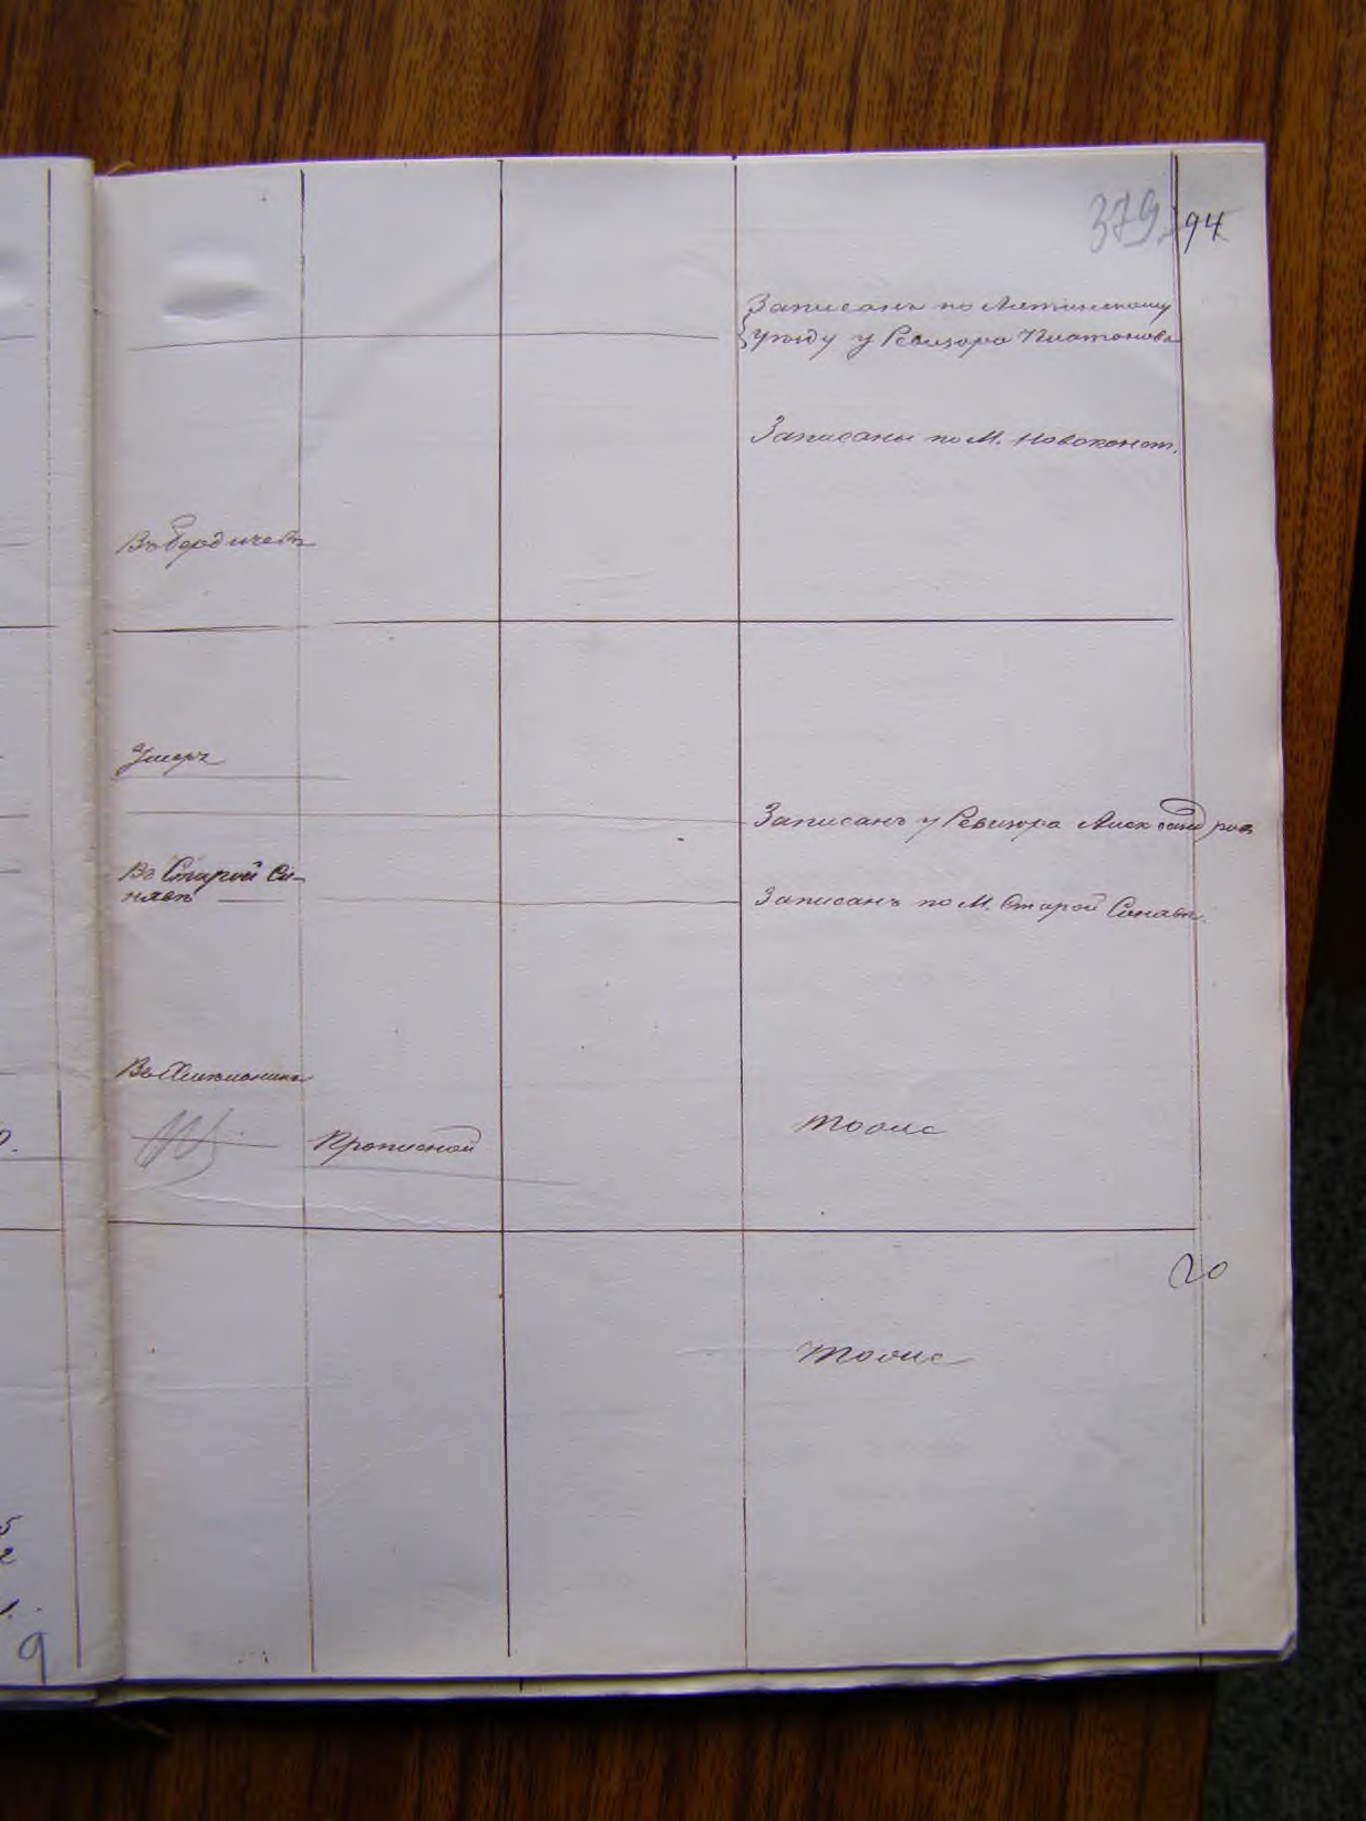 379 94
Записанъ по Лятинскому
уѣзду у Ревизора Платонова
Записаны по М. Новоконст.
Въ Бердичевѣ
Умеръ
Записанъ у Ревизора Александров
Въ Старой Си-
нявѣ
Записанъ по М. Старой Синявѣ
Прописной
тоже
20
тоже
9